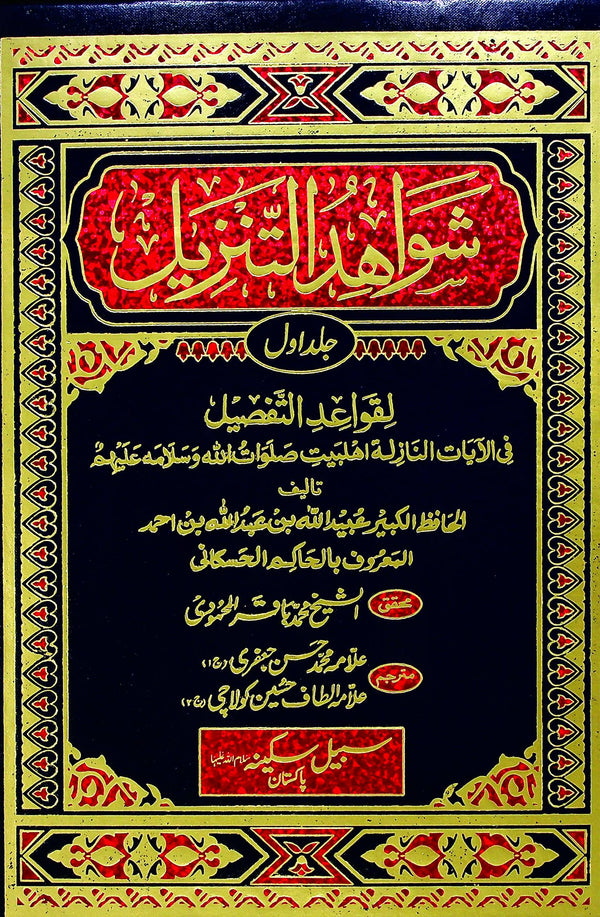 شَوَاهِدُ التَّنزِيل
جلد اول
لِقَوَاعِدِ التَّفصِيْل
فِي الآيَات النَازِلَة اهلبَيتِ صَلَوَاتُ الله وَسَلَامَه عَلَيْهِمْ
تالیف
الحَافظ الكبِيْر عُبَيْدالله بن عَبدُالله بن احمد
المَعرُوف بالحَاكِم الحَسكانی
محقق
الشیخ محمد باقر المحمودی
مترجم
علامہ محمد حسن جعفری (ج۱)
علامہ الطاف حسین کولاچی (ج۲)
سبیل سکینہ سلام اللہ علیہا
پاکستان